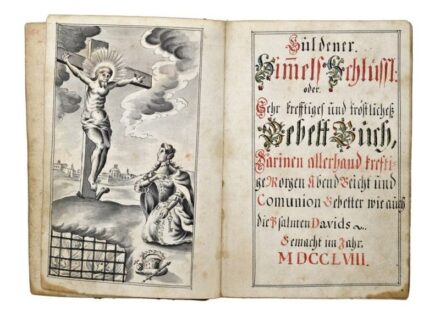 Güldener.
Him̅els Schlüssl:
oder.
Sehr krefftiges und trostliches
Gebett Buch,
Darinen allerhand krefti-
ge Morgen Abend Beicht und
Comunion Gebetter wie auch
die Psalmen Davids
Gemacht im Jahr.
MDCCLVIII.